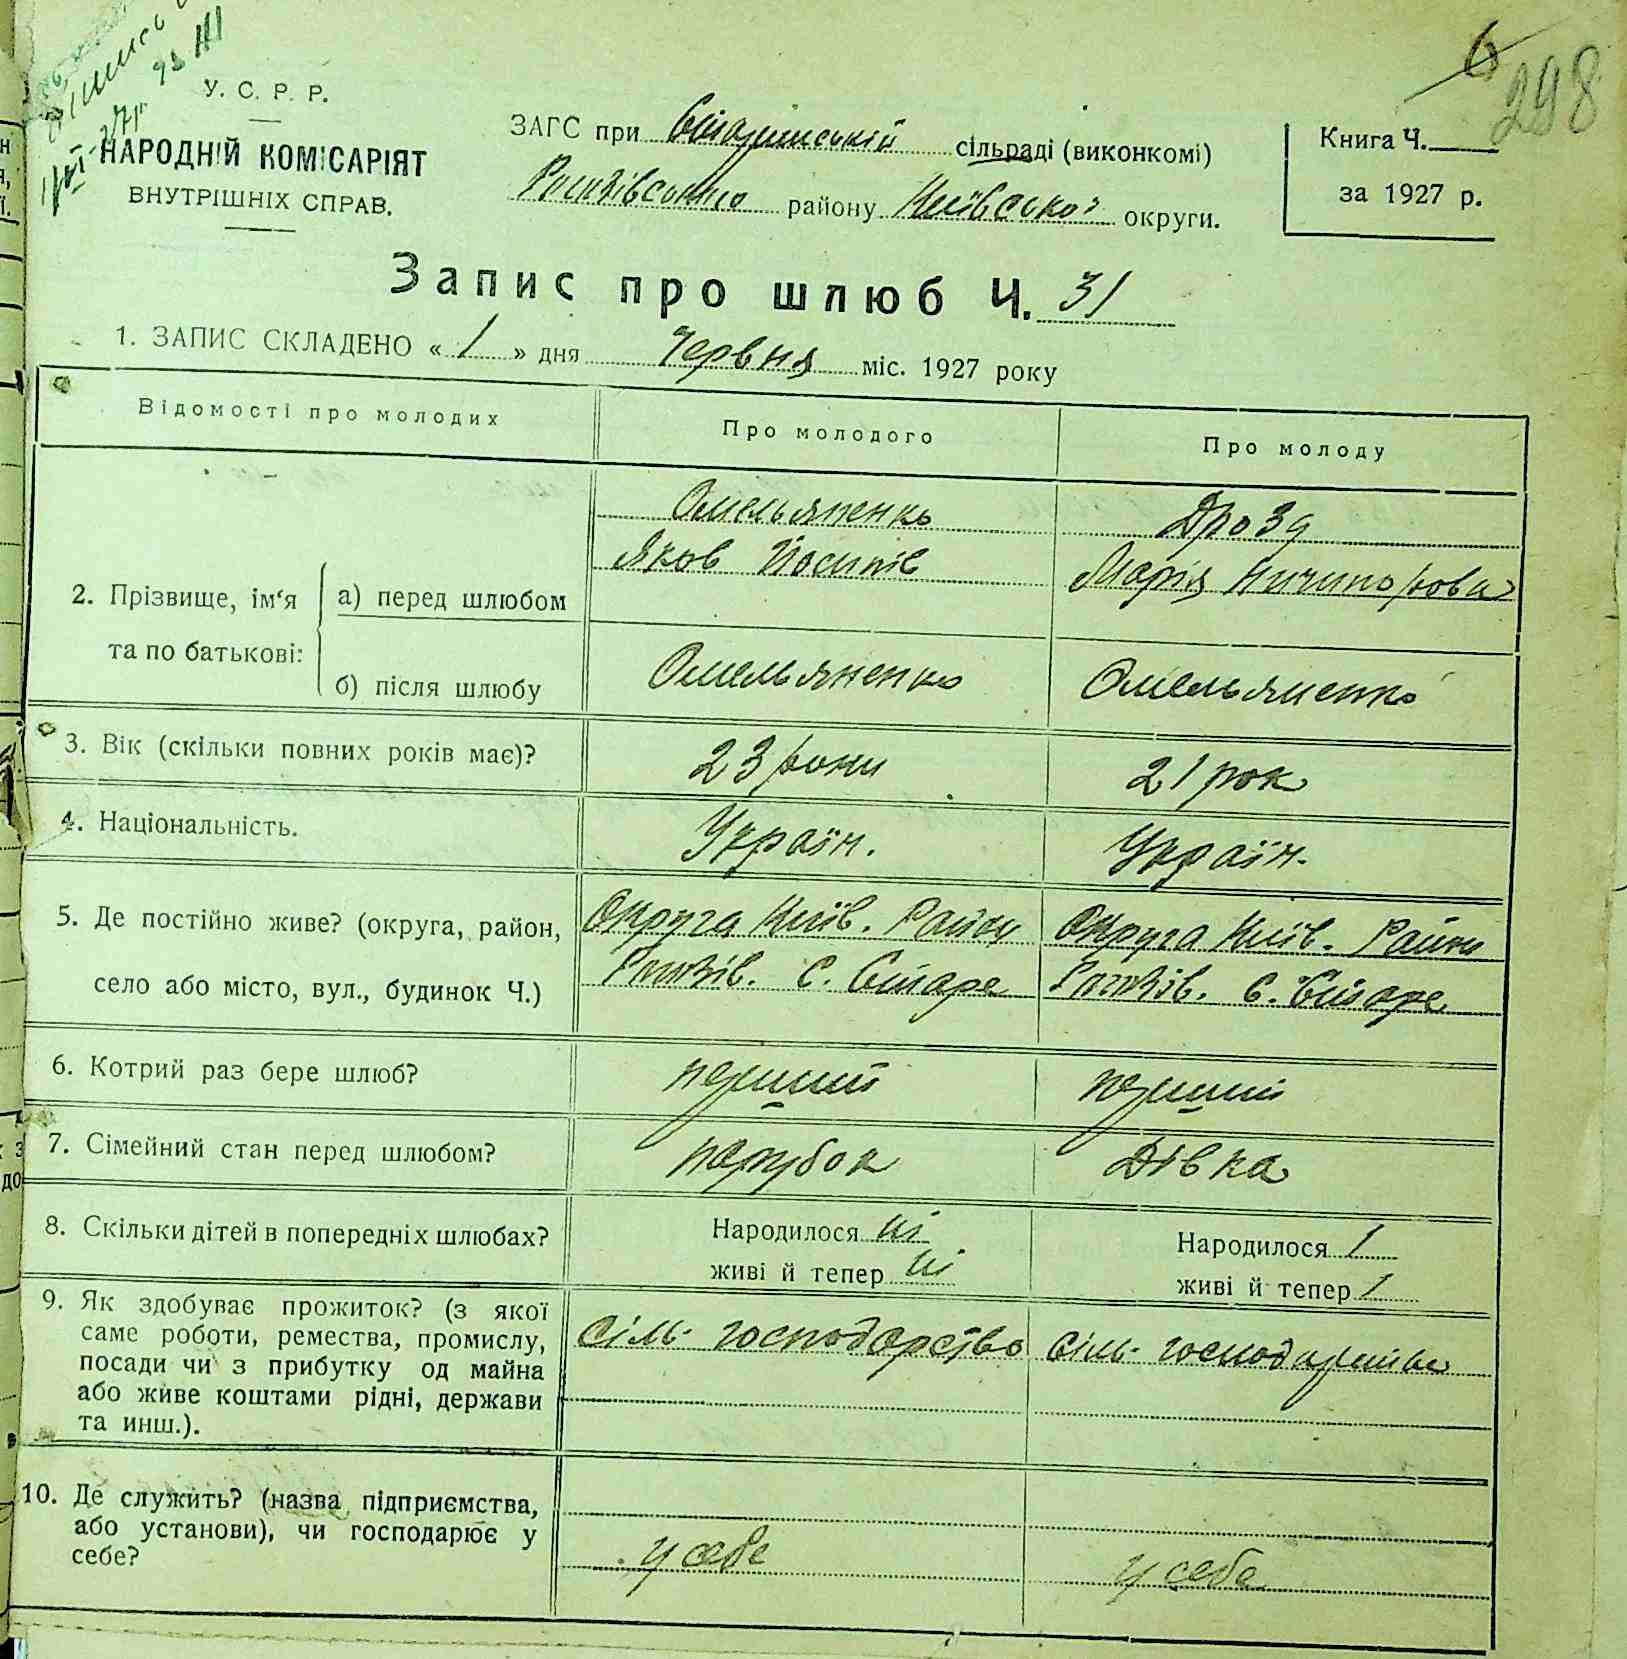 У. С. Р. Р.
НАРОДНІЙ КОМІСАРІЯТ
ВНУТРІШНІХ СПРАВ.
ЗАГС при сільраді (виконкомі)
району Київської округи.
Книга Ч.
за 1927 р.
6
298
Запис про шлюб Ч. 31
1. ЗАПИС СКЛАДЕНО « 1 » дня Червня міс. 1927 року
Відомості про молодих
Про молодого
Про молоду
2. Прізвище, ім'я та по батькові:
а) перед шлюбом
Омельяненко
Яков Йосипів
Дрозд
Марія Ничипорова
б) після шлюбу
Омельяненко
Омельяненко
3. Вік (скільки повних років має)?
23 роки
21 рок
4. Національність.
Україн.
Україн.
5. Де постійно живе? (округа, район,
село або місто, вул., будинок Ч.)
Округа Київ. Район
с. Старе
Округа Київ. Район
с. Старе
6. Котрий раз бере шлюб?
перший
перший
7. Сімейний стан перед шлюбом?
парубок
Дівка
8. Скільки дітей в попередніх шлюбах?
Народилося ні
живі й тепер ні
Народилося 1
живі й тепер 1
9. Як здобуває прожиток? (з якої
саме роботи, ремества, промислу,
посади чи з прибутку од майна
або живе коштами рідні, держави
та инш.).
Сіль. господарство
Сіль. господарство
10. Де служить? (назва підприємства,
або установи), чи господарює у
себе?
у себе
у себе